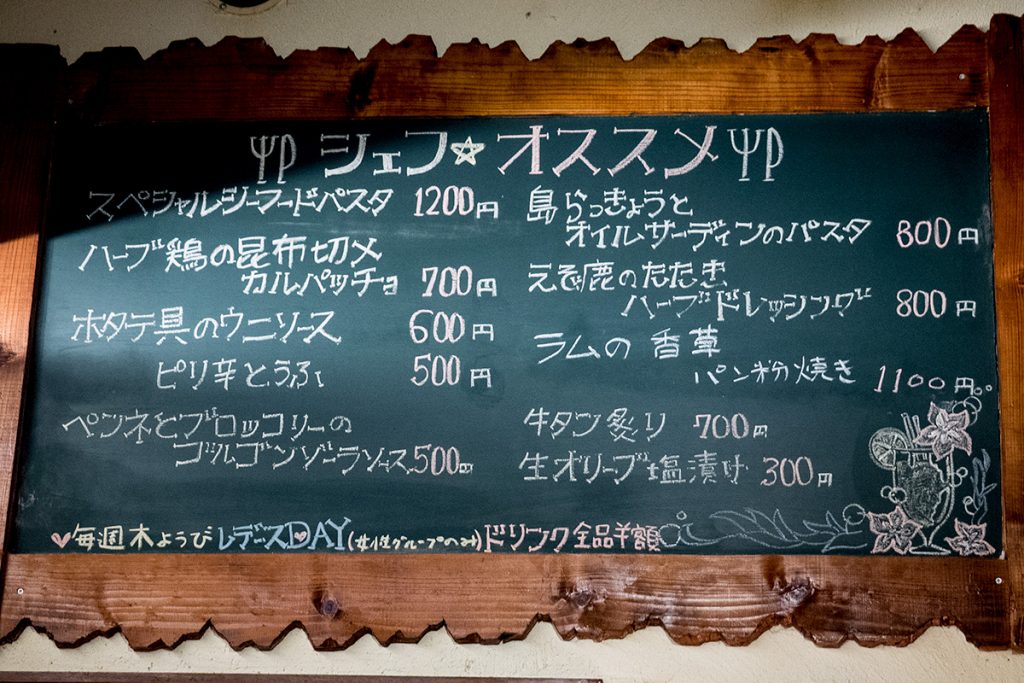 シェフ☆オススメ
スペシャルシーフードパスタ 1200円
ハーブ鶏の昆布切〆
カルパッチョ 700円
ホタテ貝のウニソース 600円
ピリ辛とうふ 500円
ペンネとブロッコリーの
ゴルゴンゾーラソース 500円
島らっきょうと
オイルサーディンのパスタ 800円
えぞ鹿のたたき
ハーブドレッシング 800円
ラムの香草
パン粉焼き 1100円
牛タン炙り 700円
生オリーブ塩漬け 300円
♥毎週木ようび レディースDAY(女性グループのみ)ドリンク全品半額